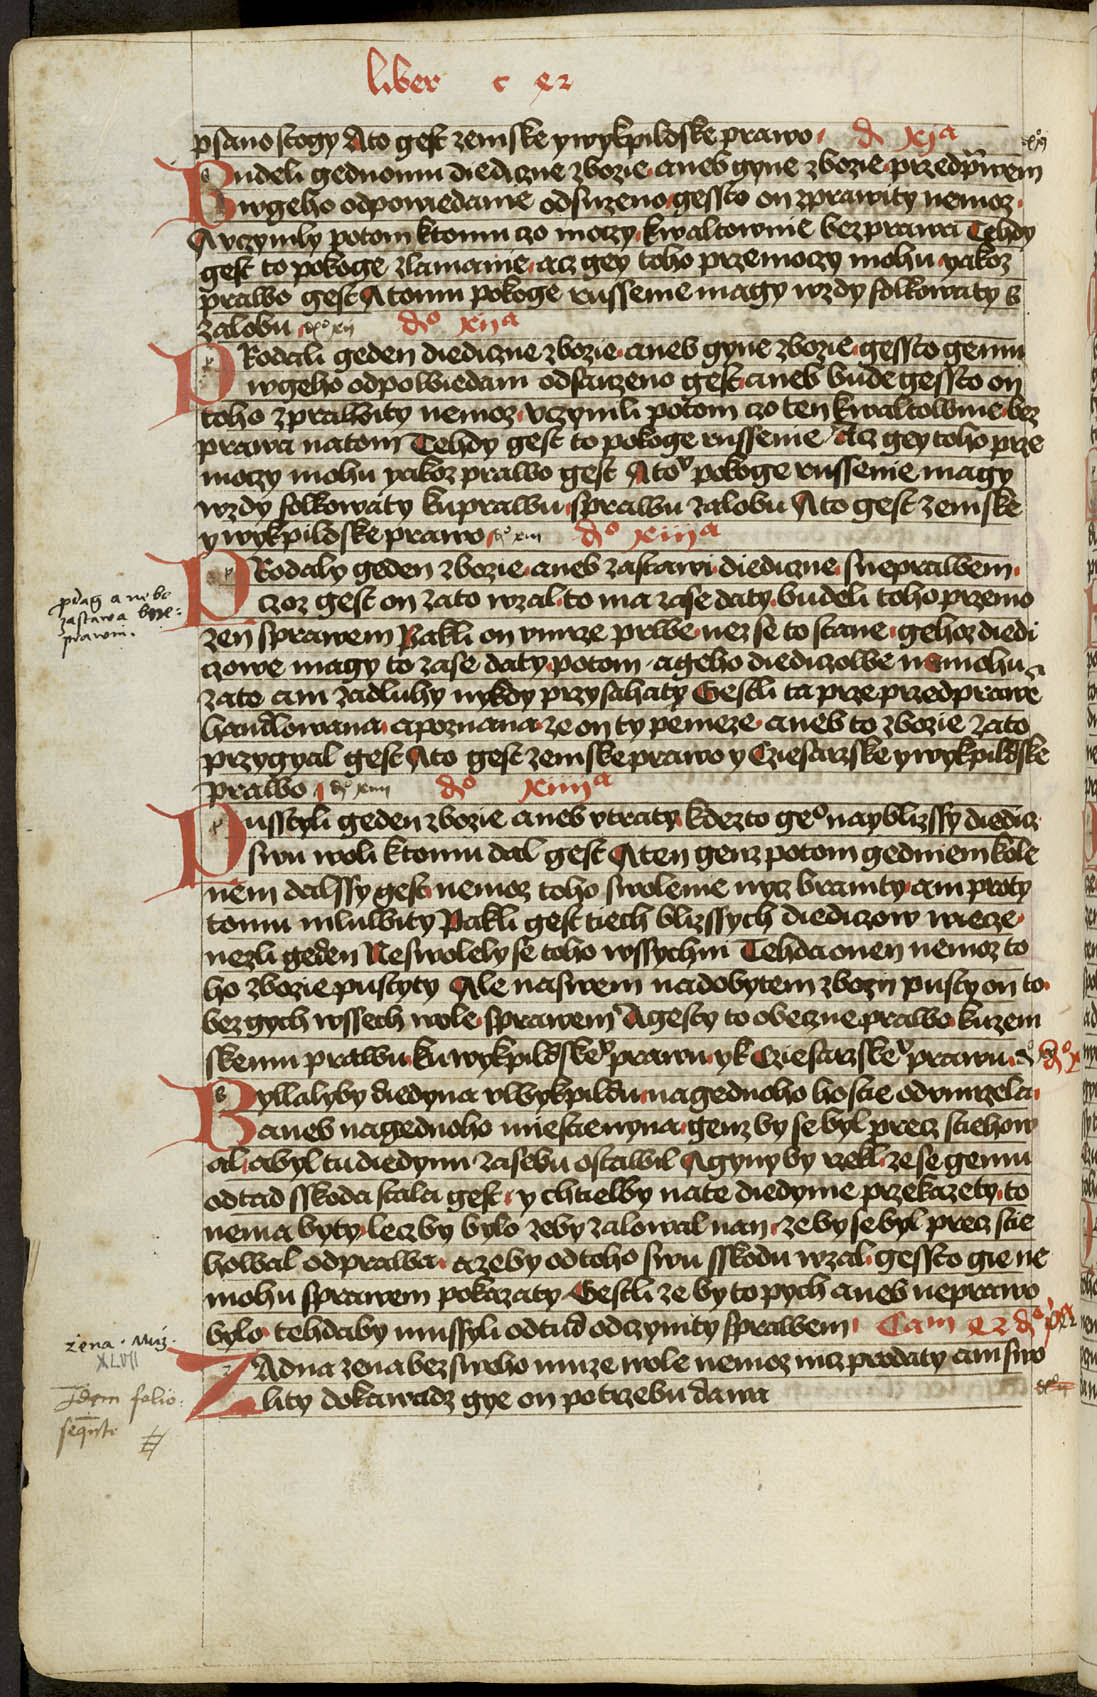 liber c x2
psano stogy Ato gest zemske y wykpildske prawo d xjª
Budeli gednomu diediczne zbozie aneb gyne zbozie przed prawem
w geho odpowiedanie odsuzeno gessto on zprawity nemoz
A vczynily potom ktomu czo moczy kwaltownie bez prawa Tehdy
gest to pokoge zlamanie acz gey toho przemoczy mohu yakoz
prawo gest A tomu pokoge russenie magy wzdy folkowaty s
zalobu d° xijª
PRodali geden diediczne zbozie aneb gyne zbozie gessto gemu
w geho odpowiedani odsuzeno gest aneb bude gessto on
toho zprawity nemoz vczynili potom czo ten kwaltownie bez
prawa natom Tehdy gest to pokoge russenie Acz gey toho prze
moczy mohu yakoz prawo gest A to° pokoge russenie magy
wzdy folkowaty ku prawu sprawu zalobu Ato gest zemske
y wykpildske prawo d° xiijª
PRodaly geden zbozie aneb zastawi diediczne s neprawem
czoz gest on zato wzal to ma zase daty budeli toho przemo
zen sprawem Pakli on vmrze prwe nez se to stane gehoz diedi
czowe magy to zase daty potom a geho diediczowe nemohu
zato ani zadluhy nykdy przysahaty Gestli ta prze przed prawem
handlowana a poznana ze on ty penieze aneb to zbozie zato
przygyal gest Ato gest zemske prawo y Cziesarzske y wykpildske
prawo d° xiiijª
Pusstyli geden zbozie aneb vtraty kdezto ge° nayblizssy diedicz
swu woli ktomu dal gest A ten genz potom gedniem kole
nem dalssy gest nemoz toho swolenie nycz branity ani proty
tomu mluwity Pakli gest tiech blizssych diediczow wiecze
nezli geden Neswolely se toho wssychni Tehda onen nemoz to
ho zbozie pustyty Ale na swem nadobytem zbozy pusty on to
bez gych wssech wole sprawem A gesty to obeczne prawo kuzem
skemu prawu ku wykpildske° prawu yk Cziesarzske° prawu
Byllalyby diedyna v wykpildu na gednoho hostie od vmrzela
aneb nagednoho miestienyna genz by se byl precz stiehow
al a byl tu diedynu zasebu ostawil A gyny by rzekl ze se gemu
odtad sskoda stala gest y chtielby nate diedynie przekazety to
nema byty lecz by bylo zeby zalowal nan ze by se byl precz stie
howal od prawa a zeby od toho swu sskodu wzal gessto gie ne
mohu sprawem pokazaty Gestli ze by to pych aneb neprawo
bylo tehdaby mussyli odtud odczynity sprawem Cam x2 d° pª
ZAdna zena bez sweho muze wole nemoz nicz prodaty ani swo
lity dokawadz gye on potrzebu dawa
zastawa
prawu
zena . Muz.
XLVII
Idem folio